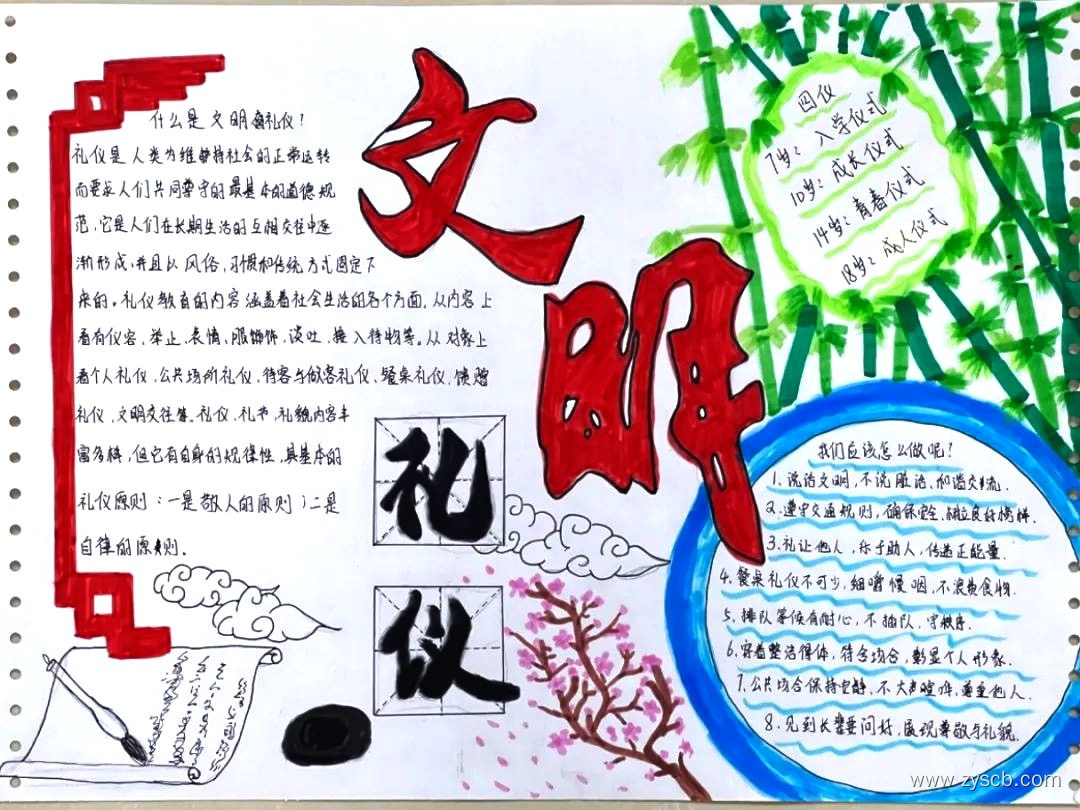 文明
礼仪
什么是文明礼仪?
礼仪是人类为维持社会的正常运转
而要求人们共同遵守的最基本的道德规
范,它是人们在长期生活的互相交往中逐
渐形成,并且以风俗,习惯和传统方式固定下
来的。礼仪教育的内容涵盖着社会生活的各个方面,从内容上
看有仪容,举止,表情,服饰,谈吐,接人待物等。从对象上
看个人礼仪,公共场所礼仪,待客与做客礼仪,餐桌礼仪,馈赠
礼仪,文明交往等。礼仪、礼节、礼貌内容丰
富多样,但它有自身的规律性,其基本的
礼仪原则:一是敬人的原则;二是
自律的原则.
四仪
7岁:入学仪式
10岁:成长仪式
14岁:青春仪式
18岁:成人仪式
我们应该怎么做呢?
1.说话文明,不说脏话,和谐交流.
2.遵守交通规则,确保安全,树立良好榜样.
3.礼让他人,乐于助人,传递正能量.
4.餐桌礼仪不可少,细嚼慢咽,不浪费食物.
5.排队等候有耐心,不插队,守秩序.
6.穿着整洁得体,符合场合,彰显个人形象.
7.公共场合保持安静,不大声喧哗,尊重他人.
8.见到长辈要问好,展现尊敬与礼貌.
www.zyscb.com